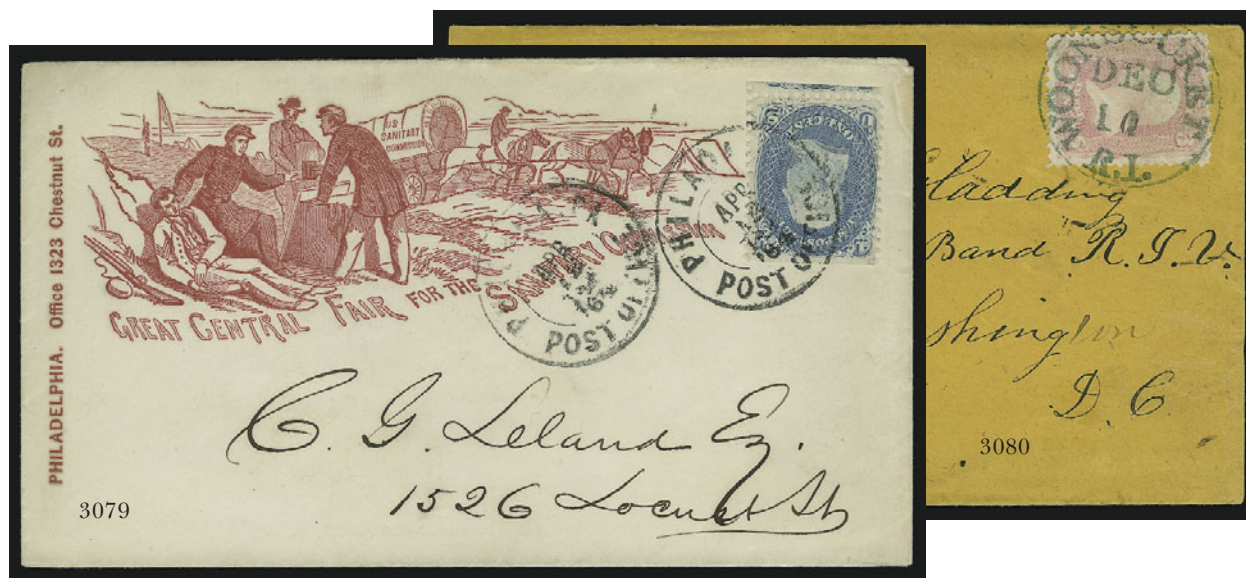 PHILADELPHIA. Office 1323 Chestnut St.
U S
SANITARY
COMMISSION
GREAT CENTRAL FAIR FOR THE SANITARY COMMISSION
APR
POST
PHILAD
APR
POST
ONE CENT
C. G. Leland Eq.
1526 Locust St
3079
WOONSOCKET
DEC
10
R.I.
Gladding
Band R.I.V.
shington
D. C.
3080